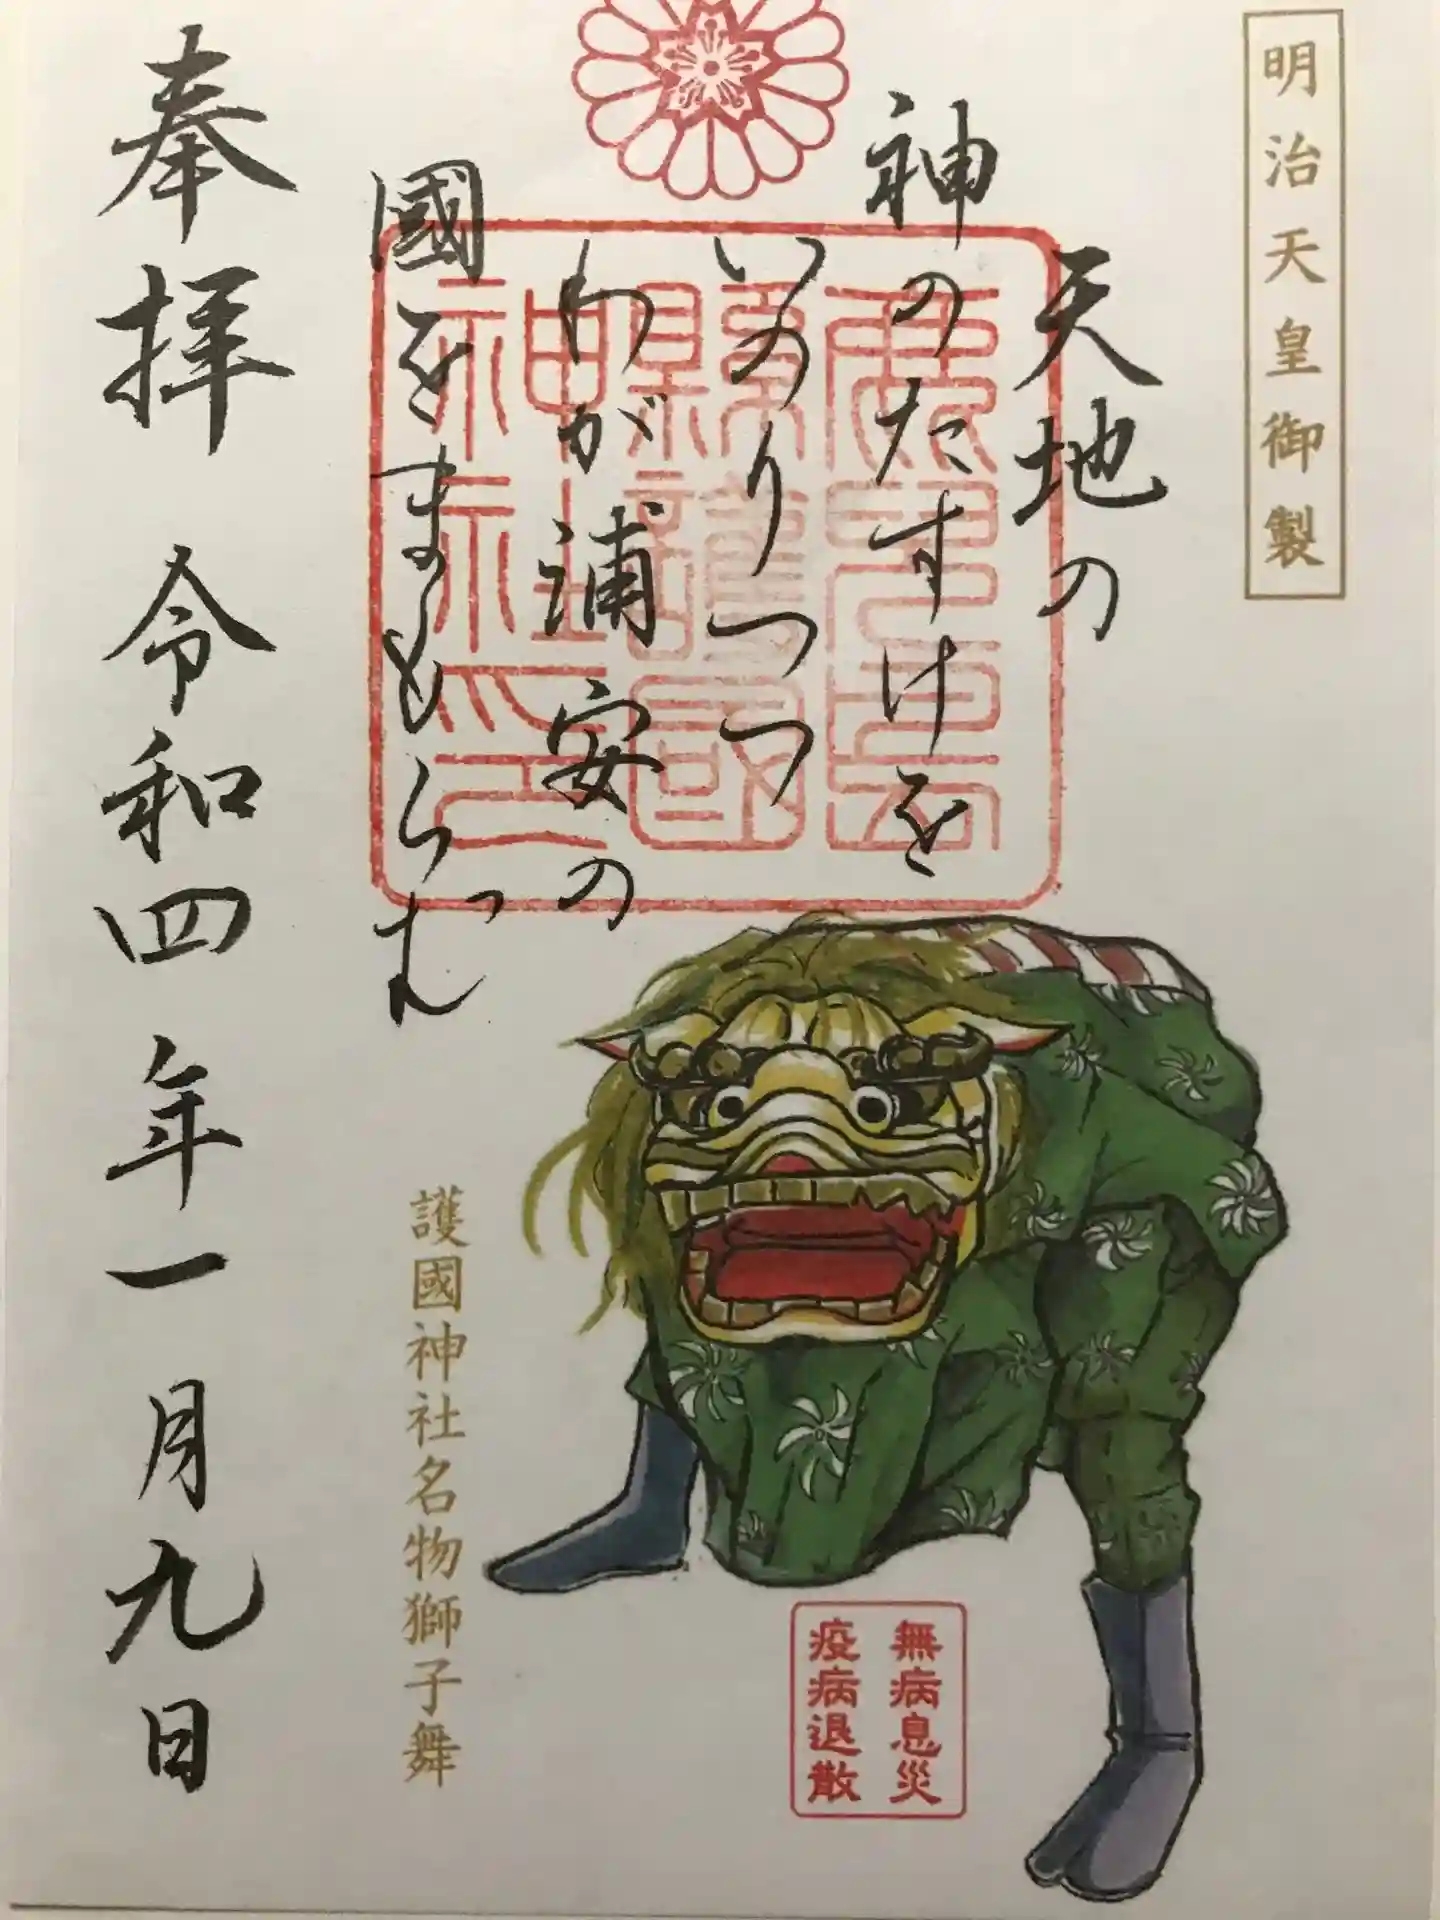 明治天皇御製
天地の
神のたすけを
いのりつつ
わが浦安の
國をまもらむ
縣護國
神社印
奉拝 令和四年一月九日
護國神社名物獅子舞
無病息災
疫病退散